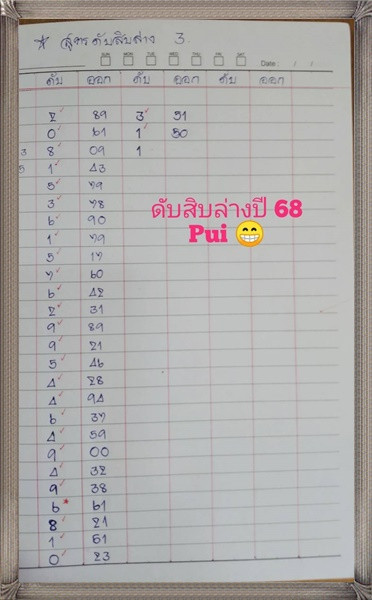 ☆ สูตรดับสิบล่าง 3
SUN MON TUE WED THU FRI SAT
Date : / /
ดับ ออก ดับ ออก ดับ ออก
2 89 3 51
0 61 1 50
3 8 09 1
5 1 43
5 79
3 78
6 90
1 79
5 17
7 60
6 42
2 31
9 89
9 21
5 46
4 28
4 94
6 37
4 59
9 00
4 32
9 38
6 * 61
8 21
1 51
0 23
ดับสิบล่างปี 68
Pui 😁